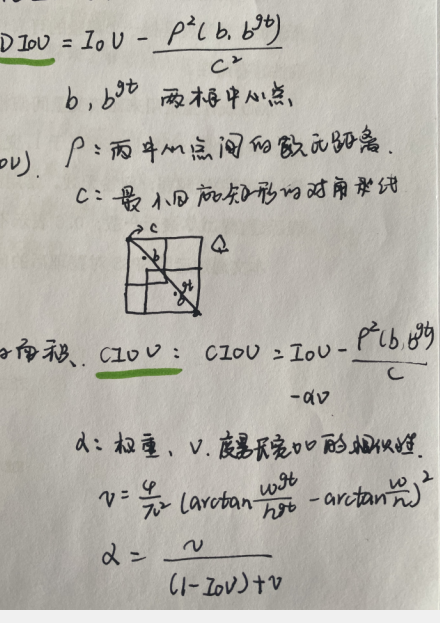 DIoU = IoU - ρ²(b, b^gt) / c²
b, b^gt 两框中心点
oU). ρ: 两中心点间的欧氏距离.
c: 最小回 矩形的对角线
c
b
gt
面积. CIOU: CIOU = IoU - ρ²(b, b^gt) / c
-αv
α: 权重, v. 度量长宽比的相似性.
v = 4/π² (arctan w^gt/h^gt - arctan w/h)²
α = v / (1-IoU)+v